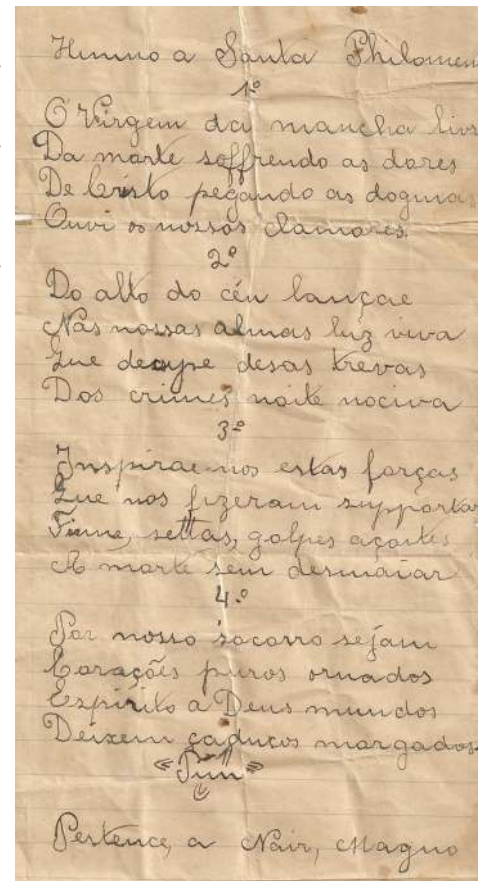 Himno a Santa Philomen
1º
Ó Virgem da mancha livr
Da morte soffrendo as dores
De Cristo pegando as dogmas
Ouvi os nossos clamores.
2º
Do alto do céu lançae
Nas nossas almas luz viva
Que desas trevas
Dos crimes noite nociva
3º
Inspirae-nos estas forças
Que nos fizeram supportar
settas, golpes açoites
A morte sem desmaiar
4.º
Por nosso socorro sejam
Corações puros ornados
Espirito a Deus mundos
Deixem caducos morgados
Fim
Pertence, a Nair, Magno